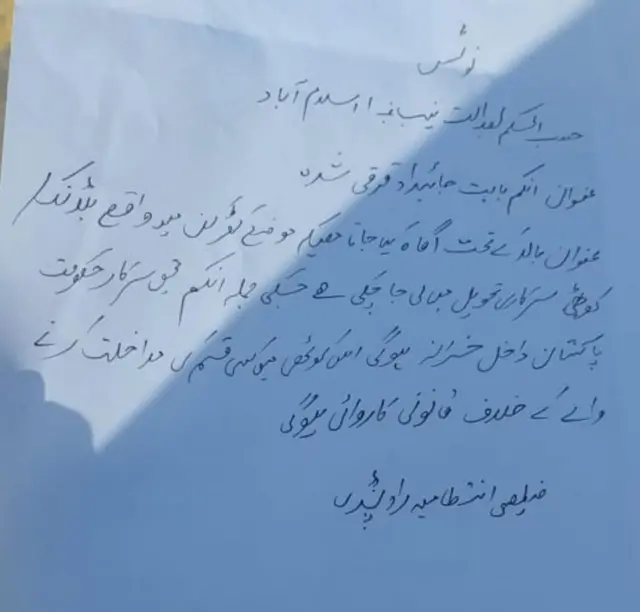 نوٹس
حسب الحکم بعدالت نیب نمبر 1 اسلام آباد
عنوان انکم بابت جائیداد قرقی شدہ
عنوان بالا کے تحت آگاہ کیا جاتا ھیکہ موضع میں واقع بلڈنگ/
کوٹھی سرکاری تحویل میں لی جا چکی ہے جسکی جملہ انکم بحق سرکار حکومت
پاکستان داخل خزانہ ہوگی اس کوٹھی میں کسی قسم کی مداخلت کرنے
والے کے خلاف قانونی کاروائی ہوگی
ضلعی انتظامیہ راولپنڈی